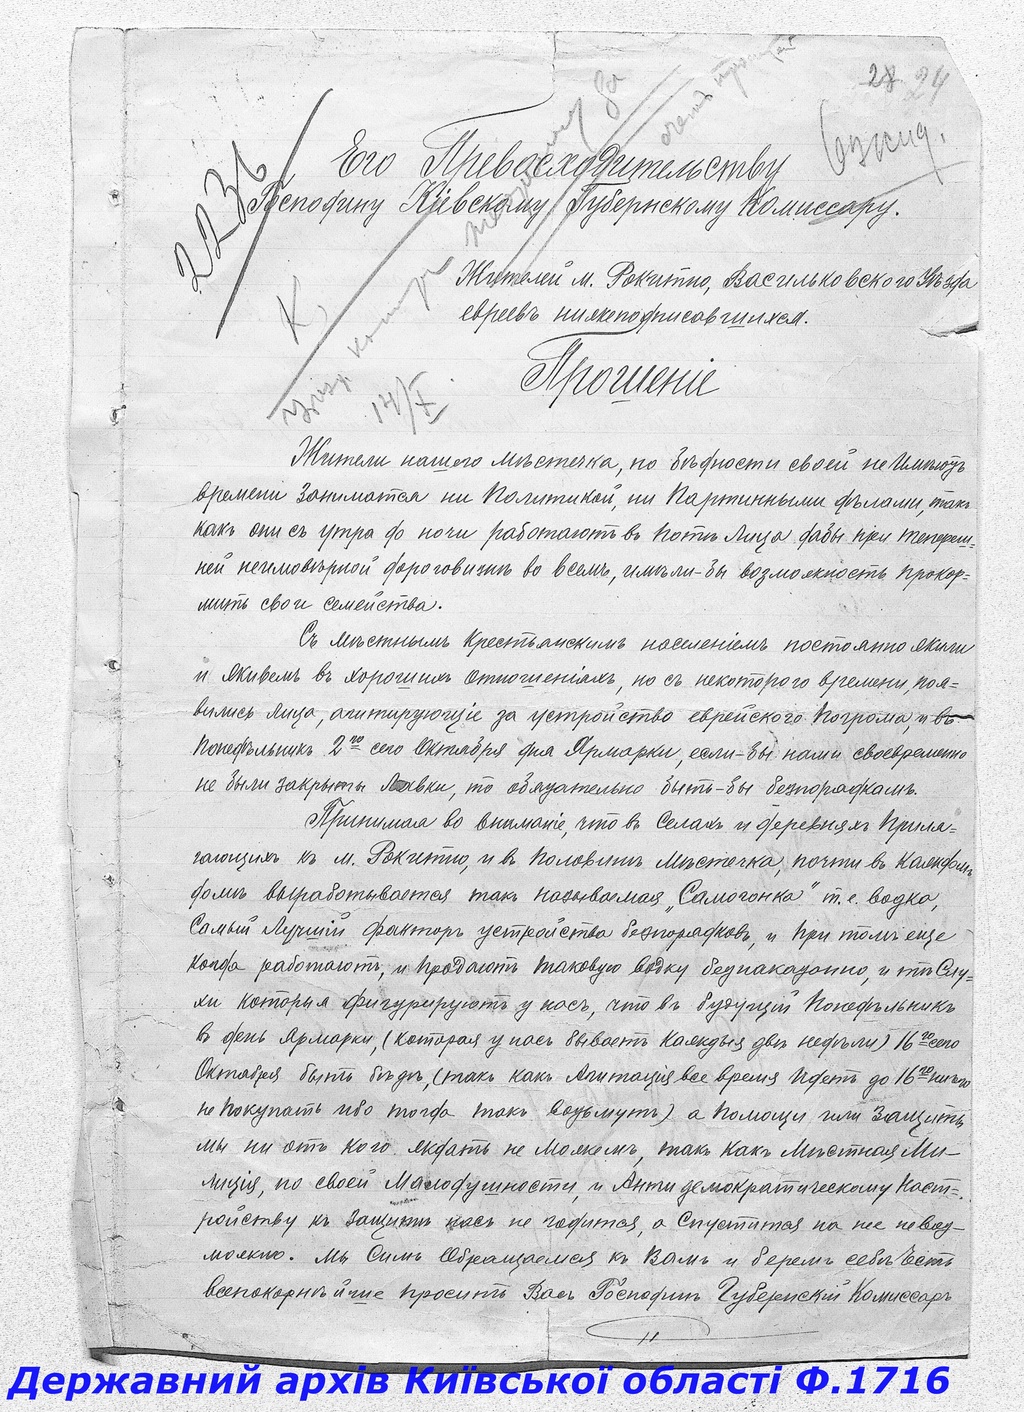 28. 24
2236
Его Превосходительству
Господину Кіевскому Губернскому Комиссару.
К,
14/X
Жителей м. Рокитно, Васильковского Уѣзда
евреевъ нижеподписавшихся.
Прошеніе
Жители нашего мѣстечка, по бѣдности своей не Имѣютъ
времени Занимается ни Политикой, ни Партинными дѣлами, такъ
какъ они съ утра до ночи работаютъ въ потѣ Лица дабы при тепереш-
ней неимовѣрной дороговизнѣ во всемъ, имѣли-бы возможность прокор=
мить свои семейства.
Съ мѣстнымъ Крестьянскимъ населеніемъ постоянно жили
и живемъ въ хорошихъ отношеніяхъ, но съ некоторого времени, поя-
вились Лица, агитирующіе за устройство еврейского Погрома, и въ
Понедѣльникъ 2го сего Октября дня Ярмарки, если-бы нами своевременно
не были закрыты Лавки, то обязательно быть-бы безпорядкамъ.
Принимая во вниманіе, что въ Селахъ и деревняхъ Приля-
гающихъ къ м. Рокитно, и въ Половинѣ Мѣстечка, почти въ Каждомъ
домѣ вырабатывается такъ называемая „Самогонка" т.е. водка,
Самый Лучшій факторъ устройства безпорядковъ, и при томъ еще
когда работаютъ, и продаютъ таковую водку безнаказанно, и тѣ Слу-
хи которыя фигурируютъ у насъ, что въ будущій Понедѣльникъ
въ день Ярмарки, (которая у насъ бываетъ Каждыя двѣ недѣли) 16го сего
Октября быть бѣдѣ, (такъ какъ Агитація все время Идетъ до 16го ничего
не Покупать ибо тогда такъ возьмутъ) а Помощи или Защиты
мы ни отъ кого ждать не Можемъ, такъ Какъ Мѣстная Ми-
лиція, по своей Малодушности, и Анти демократическому Наст-
ройству къ Защитѣ насъ не годится, а Спустится на нее невоз-
можно. Мы Симъ Обращаемся къ Вамъ и беремъ себѣ Честь
всепокорнѣйше просить Васъ Господинъ Губернскій Комиссаръ
Державний архів Київської області Ф.1716